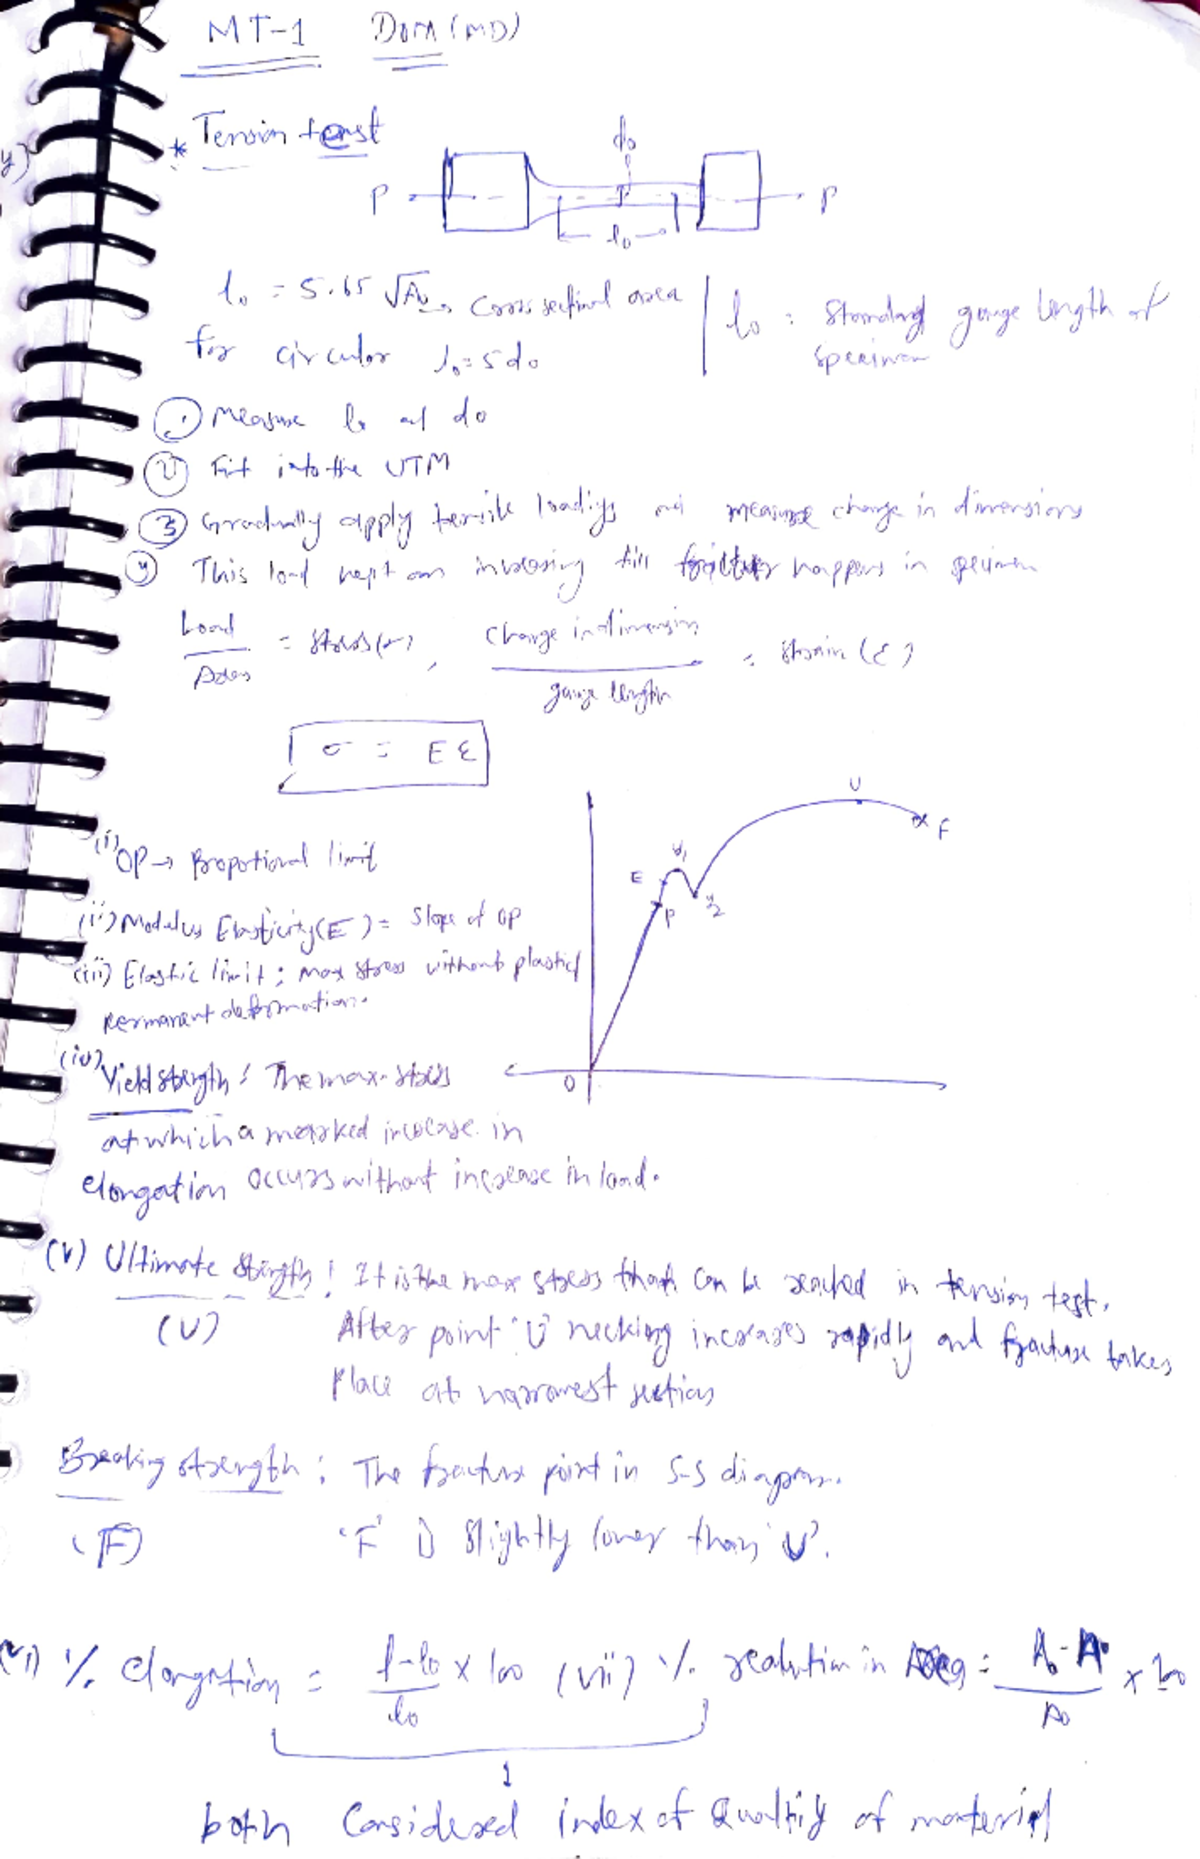 MT-1 DOM (MD)
* Tension test
do
P P
lo
lo = 5.65 √Ao → Cross sectional area | lo : Standard gauge length of
for circular lo = 5do specimen
① Measure lo and do
② Fit into the UTM
③ Gradually apply tensile loadigs and measure change in dimensions
④ This load kept on increasing till fracture happens in specimen
Load / Area = stress(σ) , change in dimension / gauge length = strain (ε)
σ = Eε
U
F
y1
E
P y2
O
(i) OP → Propotional limit
(ii) Modulus Elasticity(E) = Slope of OP
(iii) Elastic limit : max stress without plastic/
permanent deformation.
(iv) Yield strength : The max. stress
at which a marked increase in
elongation occurs without increase in load.
(v) Ultimate strength : It is the max stress that can be reached in tension test.
(U) After point 'U' necking increases rapidly and fracture takes
place at narrowest section
Breaking strength : The fracture point in S-S diagram.
(F) 'F' is slightly lower than 'U'.
(vi) % Elongation = l-lo / lo x 100 (vii) % reduction in Area = Ao-A / Ao x 100
both Considered index of Quality of material